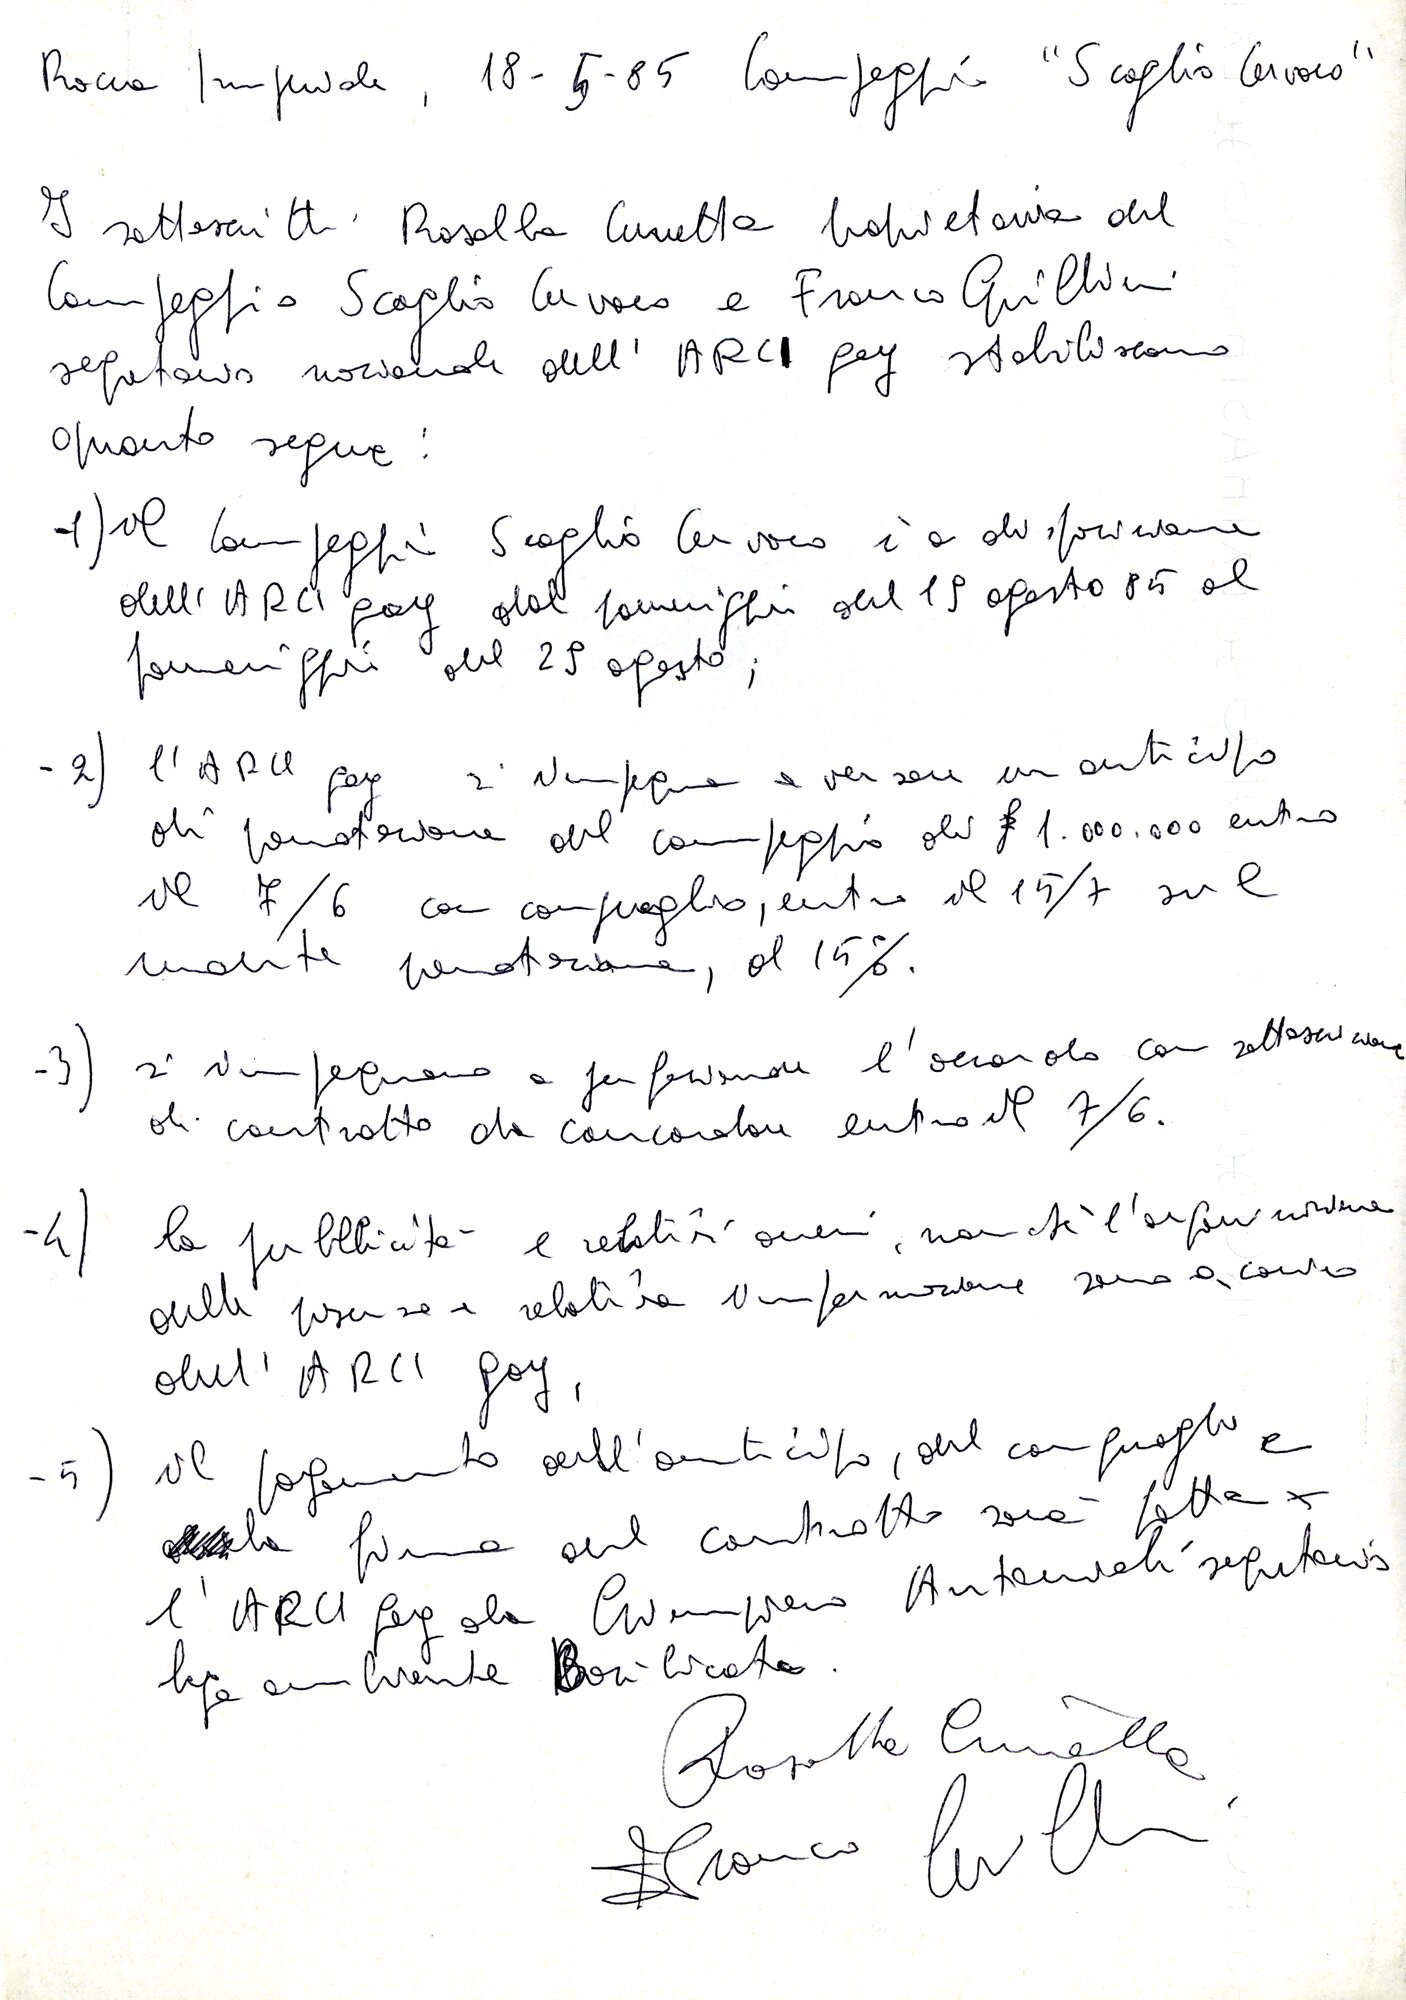 Rocca Imperiale, 18-5-85 Campeggio "Scoglio Cervaro"
I sottoscritti Rosalba Cunetta proprietaria del
Campeggio Scoglio Cervaro e Franco Grillini
segretario nazionale dell'ARCI gay stabiliscono
quanto segue:
-1) il Campeggio Scoglio Cervaro è a disposizione
dell'ARCI gay dal pomeriggio del 19 agosto 85 al
pomeriggio del 29 agosto;
-2) l'ARCI gay si impegna a versare un anticipo
di prenotazione del campeggio di £ 1.000.000 entro
il 7/6 con conguaglio, entro il 15/7 sul
prenotazione, al 15%.
-3) si impegnano a perfezionare l'accordo con sottoscrizione
di contratto da concordare entro il 7/6.
-4) la pubblicità e relativi oneri, nonché l'organizzazione
delle presenze e relativa informazione sono a carico
dell'ARCI gay,
-5) il pagamento dell'anticipo, del conguaglio e
la firma del contratto sarà fatta x
l'ARCI gay da Giampiero Antonucci segretario
lega ambiente Basilicata.
Rosalba Cunetta
Franco Grillini